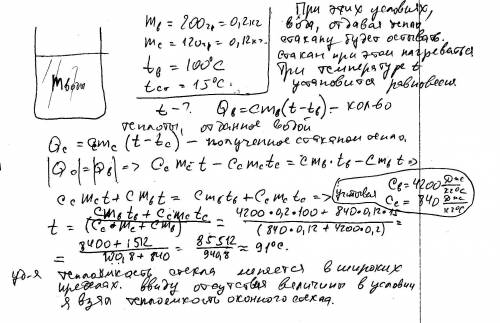 m вода
mв = 200гр = 0,2кг
mс = 120гр = 0,12кг.
tв = 100°C
tст = 15°C.
При этих условиях,
вода, отдавая тепло
стакану будет остывать.
стакан при этом нагреваться
При температуре t
установится равновесие
t - ? Qв = cmв(t-tв) - кол-во
теплоты, отданное водой
Qc = ccmc(t-tc) - полученное стаканом тепло.
|Qc| = |Qв| => Cc mc t - Cc mc tc = Cmв·tв - Cmв t =>
Cc mc t + Cmв t = Cmв tв + Cc mc tc =>
учитывая Cв = 4200 Дж/кг°C
Cc = 840 Дж/кг°C
t = (Cmв tв + Cc mc tc)/(Cc·mc + Cmв) = (4200·0,2·100 + 840·0,12·15)/(840·0,12 + 4200·0,2) =
= (8400 + 1512)/(100,8 + 840) = 85512/940,8 ≈ 91°C.
уд-я теплоёмкость стекла меняется в широких
пределах. ввиду отсутствия величины в условии
я взял теплоемкость оконного стекла.